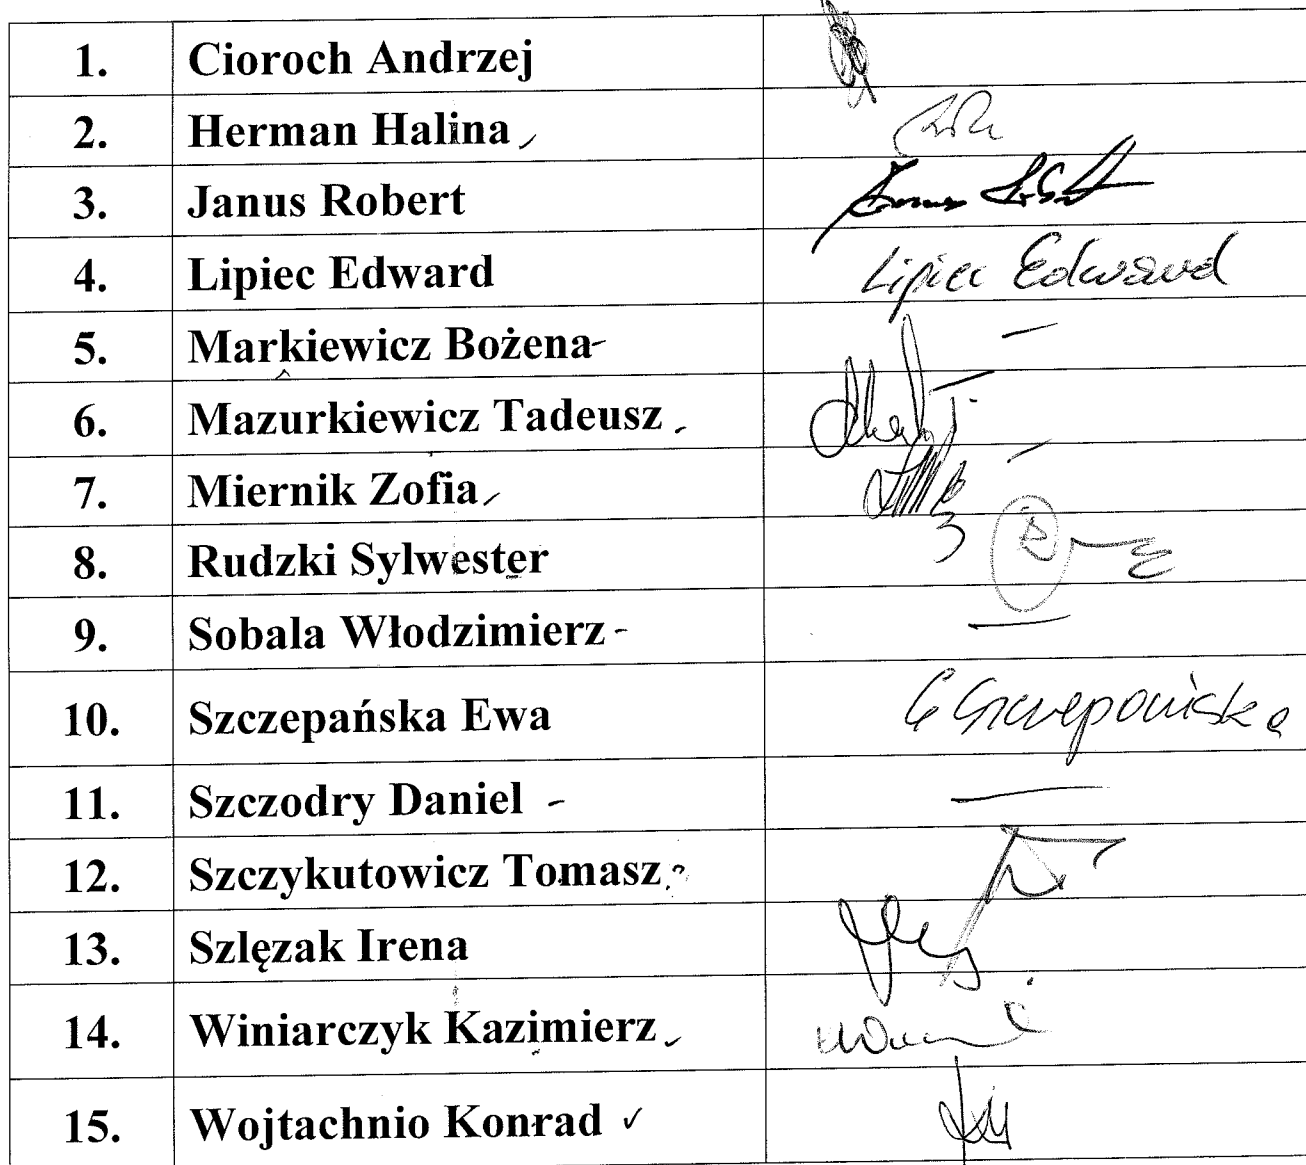 1. Cioroch Andrzej
2. Herman Halina
3. Janus Robert
4. Lipiec Edward Lipiec Edward
5. Markiewicz Bożena
6. Mazurkiewicz Tadeusz
7. Miernik Zofia
8. Rudzki Sylwester
9. Sobala Włodzimierz
10. Szczepańska Ewa E Szczepańska
11. Szczodry Daniel
12. Szczykutowicz Tomasz
13. Szlęzak Irena
14. Winiarczyk Kazimierz
15. Wojtachnio Konrad